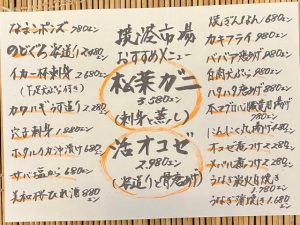 境港市場
おすすめメニュー
松葉ガニ
3,580エン
(刺身と蒸し)
活オコゼ
2,980エン
(姿造りと骨唐あげ)
なまこポンズ 780エン
のどぐろ姿造り 2,480エン
イカ一杯刺身 2,680エン
カワハギ姿造り 2,280エン
穴子刺身 1,880エン
ホタルイカ沖漬け 680エン
サバ塩から 680エン
ひれ酒 880エン
焼ぎんなん 680エン
カキフライ 980エン
ババア唐あげ 980エン
白肉天ぷら 980エン
ハタハタ唐あげ 880エン
にんにく丸あげ
オコゼ煮つけ 2,280エン
メバル煮つけ 2,280エン
うなぎ炭火白焼き
1,780エン
うなぎ蒲焼き 1,680エン